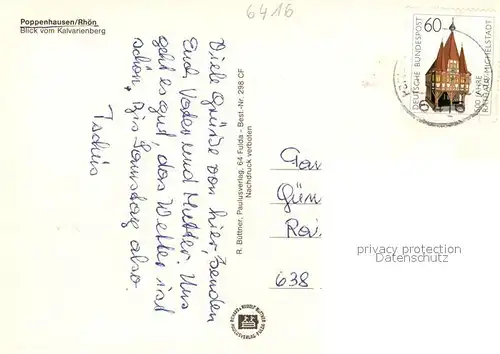 6416
Poppenhausen/Rhön
Blick vom Kalvarienberg
60
DEUTSCHE BUNDESPOST
500 JAHRE
RATHAUS MICHELSTADT
Viele Grüße von hier, senden
Euch Vater und Mutter. Uns
geht es gut, das Wetter ist
schön. Bis Sonnstag also
Tschüs
R. Büttner, Paulusverlag, 64 Fulda - Best.-Nr. 298 CF
Nachdruck verboten
Gün
638
privacy protection
Datenschutz